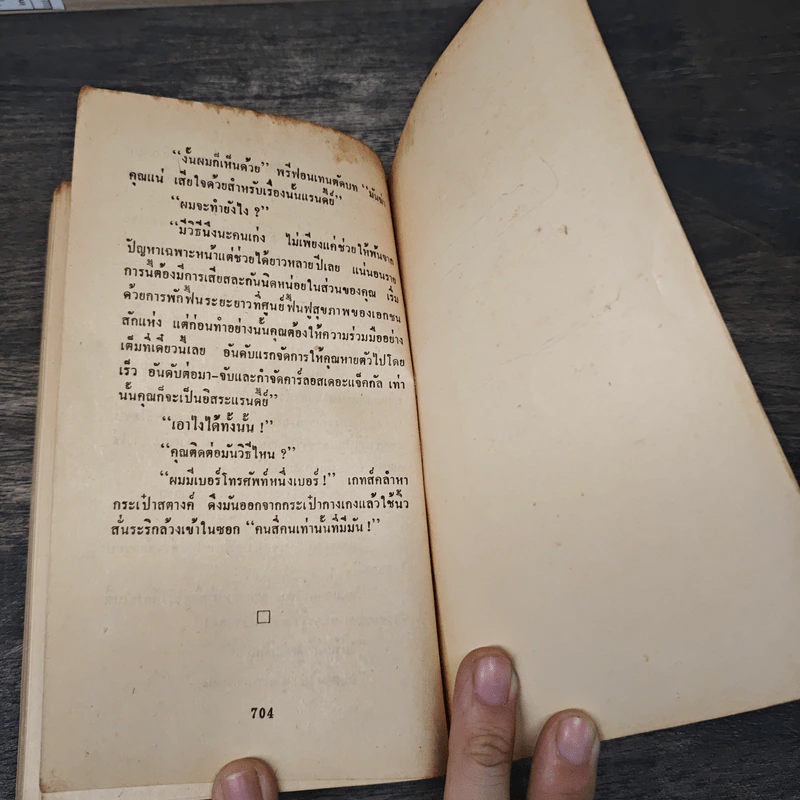 “งั้นผมก็เห็นด้วย” พรีฟอนเทนตัดบท “มันฆ่า
คุณแน่ เสียใจด้วยสำหรับเรื่องนั้นแรนดี้ย์”
“ผมจะทำยังไง ?”
“มีวิธีนึงนะคนเก่ง ไม่เพียงแค่ช่วยให้พ้นจาก
ปัญหาเฉพาะหน้าแต่ช่วยได้ยาวหลายปีเลย แน่นอนราย
การนี้ต้องมีการเสียสละกันนิดหน่อยในส่วนของคุณ เริ่ม
ด้วยการพักฟื้นระยะยาวที่ศูนย์ฟื้นฟูสุขภาพของเอกชน
สักแห่ง แต่ก่อนทำอย่างนั้นคุณต้องให้ความร่วมมืออย่าง
เต็มที่เดี๋ยวนี้เลย อันดับแรกจัดการให้คุณหายตัวไปโดย
เร็ว อันดับต่อมา–จับและกำจัดคาร์ลอสเดอะแจ็คกัล เท่า
นั้นคุณก็จะเป็นอิสระแรนดี้ย์”
“เอาไงได้ทั้งนั้น !”
“คุณติดต่อมันวิธีไหน ?”
“ผมมีเบอร์โทรศัพท์หนึ่งเบอร์ !” เกทส์คลำหา
กระเป๋าสตางค์ ดึงมันออกจากกระเป๋ากางเกงแล้วใช้นิ้ว
สั่นระริกล้วงเข้าในซอก “คนสี่คนเท่านั้นที่มีมัน !”
704